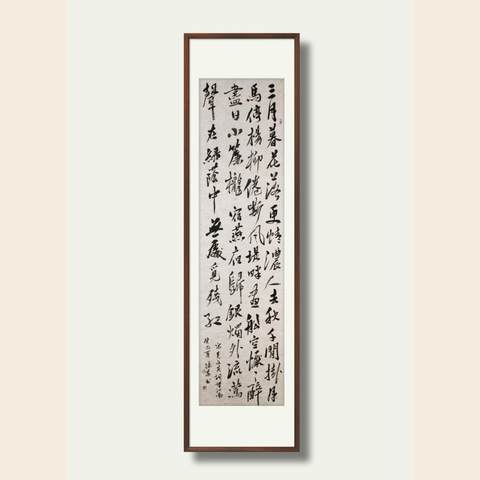 三月暮花落更情濃人去秋千閒掛月
馬停楊柳倦嘶風堤畔畫船空懨々醉
盡日小簾櫳宿燕夜歸銀燭外流鶯
聲在綠蔭中無處覓殘紅
宋吳文英詞望江南